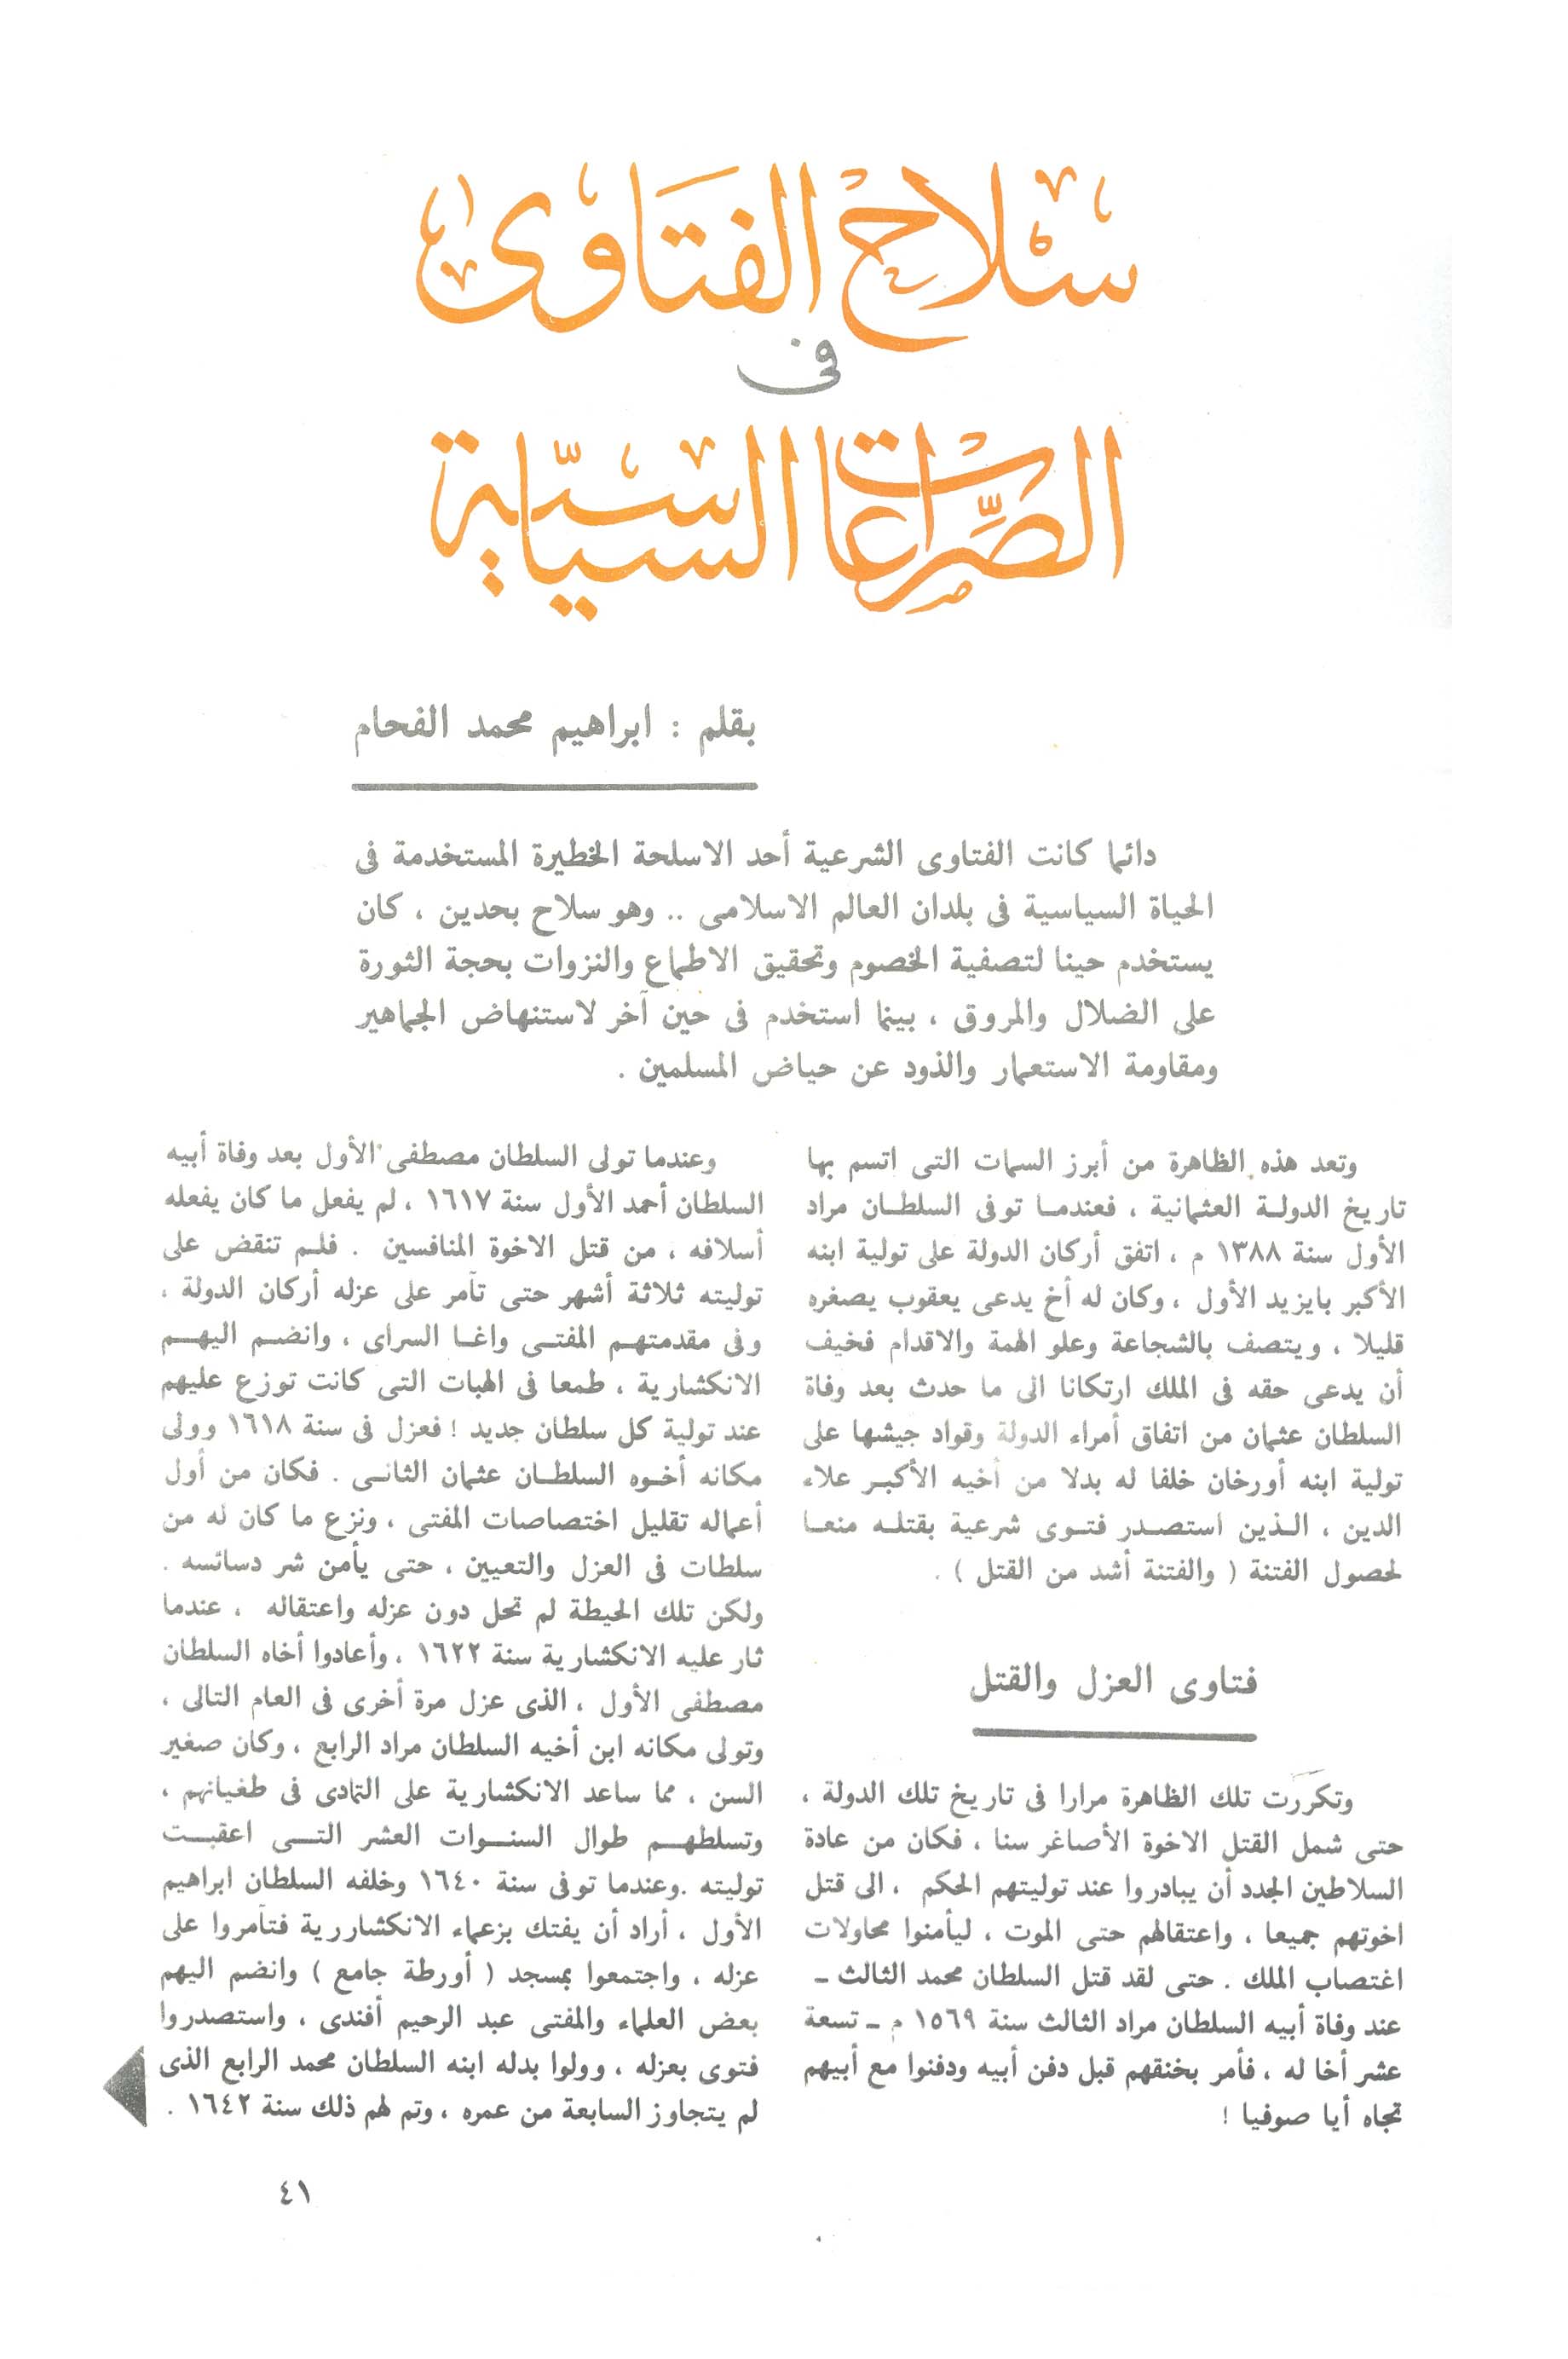 سلاح الفتاوى
فى
الصراعات السياسية
بقلم : ابراهيم محمد الفحام
دائما كانت الفتاوى الشرعية أحد الاسلحة الخطيرة المستخدمة فى
الحياة السياسية فى بلدان العالم الاسلامى .. وهو سلاح بحدين ، كان
يستخدم حينا لتصفية الخصوم وتحقيق الاطماع والنزوات بحجة الثورة
على الضلال والمروق ، بينما استخدم فى حين آخر لاستنهاض الجماهير
ومقاومة الاستعمار والذود عن حياض المسلمين .
وتعد هذه الظاهرة من أبرز السمات التى اتسم بها
تاريخ الدولة العثمانية ، فعندما توفى السلطان مراد
الأول سنة ١٣٨٨ م ، اتفق أركان الدولة على تولية ابنه
الأكبر بايزيد الأول ، وكان له أخ يدعى يعقوب يصغره
قليلا ، ويتصف بالشجاعة وعلو الهمة والاقدام فخيف
أن يدعى حقه فى الملك ارتكانا الى ما حدث بعد وفاة
السلطان عثمان من اتفاق أمراء الدولة وقواد جيشها على
تولية ابنه أورخان خلفا له بدلا من أخيه الأكبر علاء
الدين ، الذين استصدر فتوى شرعية بقتله منعا
لحصول الفتنة ( والفتنة أشد من القتل ) .
فتاوى العزل والقتل
وتكررت تلك الظاهرة مرارا فى تاريخ تلك الدولة ،
حتى شمل القتل الاخوة الأصاغر سنا ، فكان من عادة
السلاطين الجدد أن يبادروا عند توليتهم الحكم ، الى قتل
اخوتهم جميعا ، واعتقالهم حتى الموت ، ليأمنوا محاولات
اغتصاب الملك . حتى لقد قتل السلطان محمد الثالث –
عند وفاة أبيه السلطان مراد الثالث سنة ١٥٦٩ م – تسعة
عشر أخا له ، فأمر بخنقهم قبل دفن أبيه ودفنوا مع أبيهم
تجاه أيا صوفيا !
وعندما تولى السلطان مصطفى الأول بعد وفاة أبيه
السلطان أحمد الأول سنة ١٦١٧ ، لم يفعل ما كان يفعله
أسلافه ، من قتل الاخوة المنافسين . فلم تنقض على
توليته ثلاثة أشهر حتى تآمر على عزله أركان الدولة ،
وفى مقدمتهم المفتى واغا السراى ، وانضم اليهم
الانكشارية ، طمعا فى الهبات التى كانت توزع عليهم
عند تولية كل سلطان جديد ! فعزل فى سنة ١٦١٨ وولى
مكانه أخوه السلطان عثمان الثانى . فكان من أول
أعماله تقليل اختصاصات المفتى ، ونزع ما كان له من
سلطات فى العزل والتعيين ، حتى يأمن شر دسائسه .
ولكن تلك الحيطة لم تحل دون عزله واعتقاله ، عندما
ثار عليه الانكشارية سنة ١٦٢٢ ، وأعادوا أخاه السلطان
مصطفى الأول ، الذى عزل مرة أخرى فى العام التالى ،
وتولى مكانه ابن أخيه السلطان مراد الرابع ، وكان صغير
السن ، مما ساعد الانكشارية على التمادى فى طغيانهم ،
وتسلطهم طوال السنوات العشر التى اعقبت
توليته .وعندما توفى سنة ١٦٤٠ وخلفه السلطان ابراهيم
الأول ، أراد أن يفتك بزعماء الانكشاررية فتآمروا على
عزله ، واجتمعوا بمسجد ( أورطة جامع ) وانضم اليهم
بعض العلماء والمفتى عبد الرحيم أفندى ، واستصدروا
فتوى بعزله ، وولوا بدله ابنه السلطان محمد الرابع الذى
لم يتجاوز السابعة من عمره ، وتم لهم ذلك سنة ١٦٤٢ .
٤١